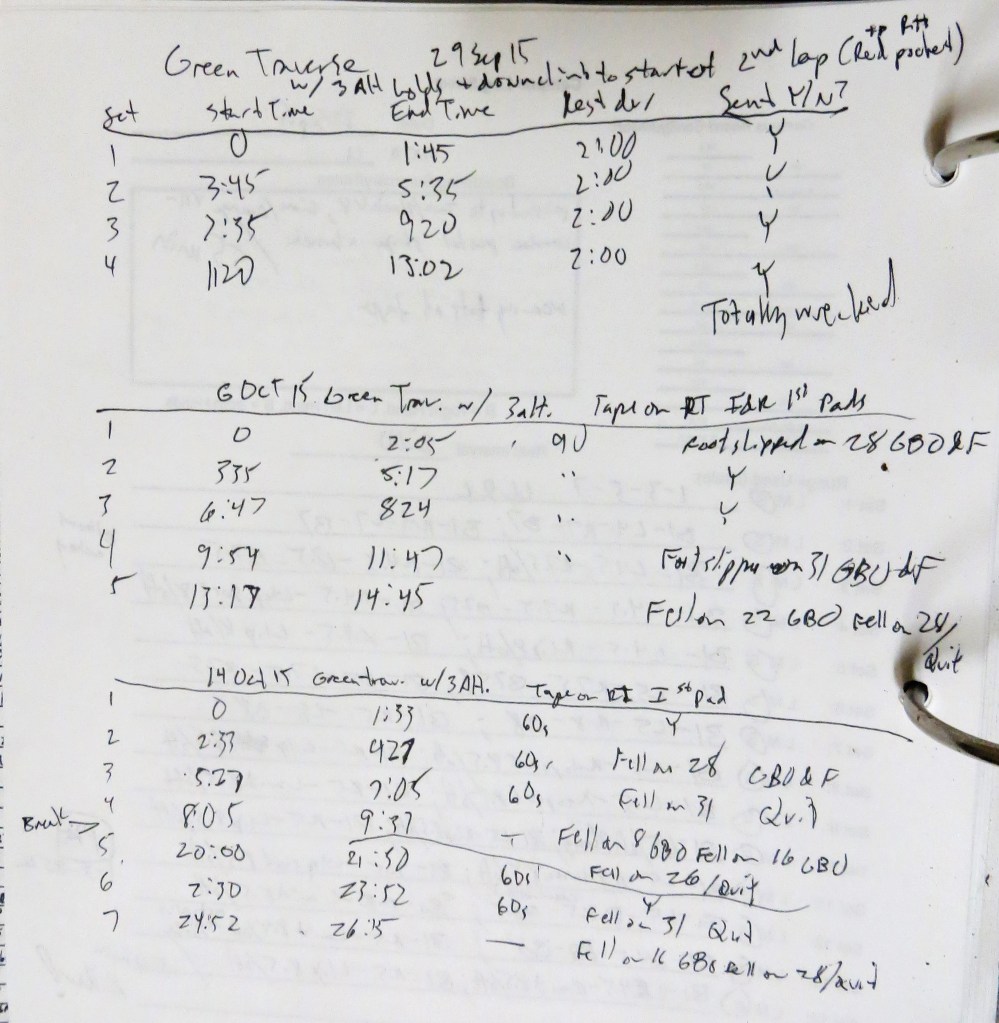 Green Traverse 29 Sep 15
w/ 3 Alt holds + downclimb to start of 2nd lap (Red pocket)
set Start Time End Time Rest dur Sent Y/N?
1 0 1:45 2:00 Y
2 3:45 5:35 2:00 Y
3 7:35 920 2:00 Y
4 1120 13:02 2:00 Y
Totally wrecked
6 Oct 15 Green Trav. w/ 3 alt. Tape on RT I&R 1st Pads
1 0 2:05 90 Foot slipped on 28 GBO & F
2 335 5:17 " Y
3 6:47 824 " Y
4 9:54 11:47 " Foot slipped on 31 GBO & F
5 13:17 14:45 Fell on 22 GBO Fell on 28/
Quit
14 Oct 15 Green trav. w/ 3 Alt. Tape on RT I 1st pad
1 0 1:33 60s Y
2 2:33 427 60s Fell on 28 GBO & F
3 5:27 7:05 60s Fell on 31 Quit
4 8:05 9:37 — Fell on 8 GBO Fell on 16 GBO
Fell on 26/Quit
Break →
5 20:00 21:30 60s Y
6 2:30 23:52 60s Fell on 31 Quit
7 24:52 26:15 — Fell on 16 GBO Fell on 28/Quit